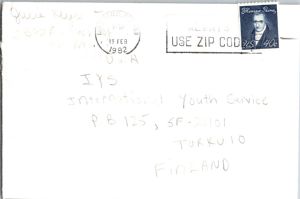 19 FEB
1982
USE ZIP CODE
Thomas Paine
US 40c
U.S.A
IYS
International Youth Service
P.B. 125, SF-20101
TURKU 10
FINLAND